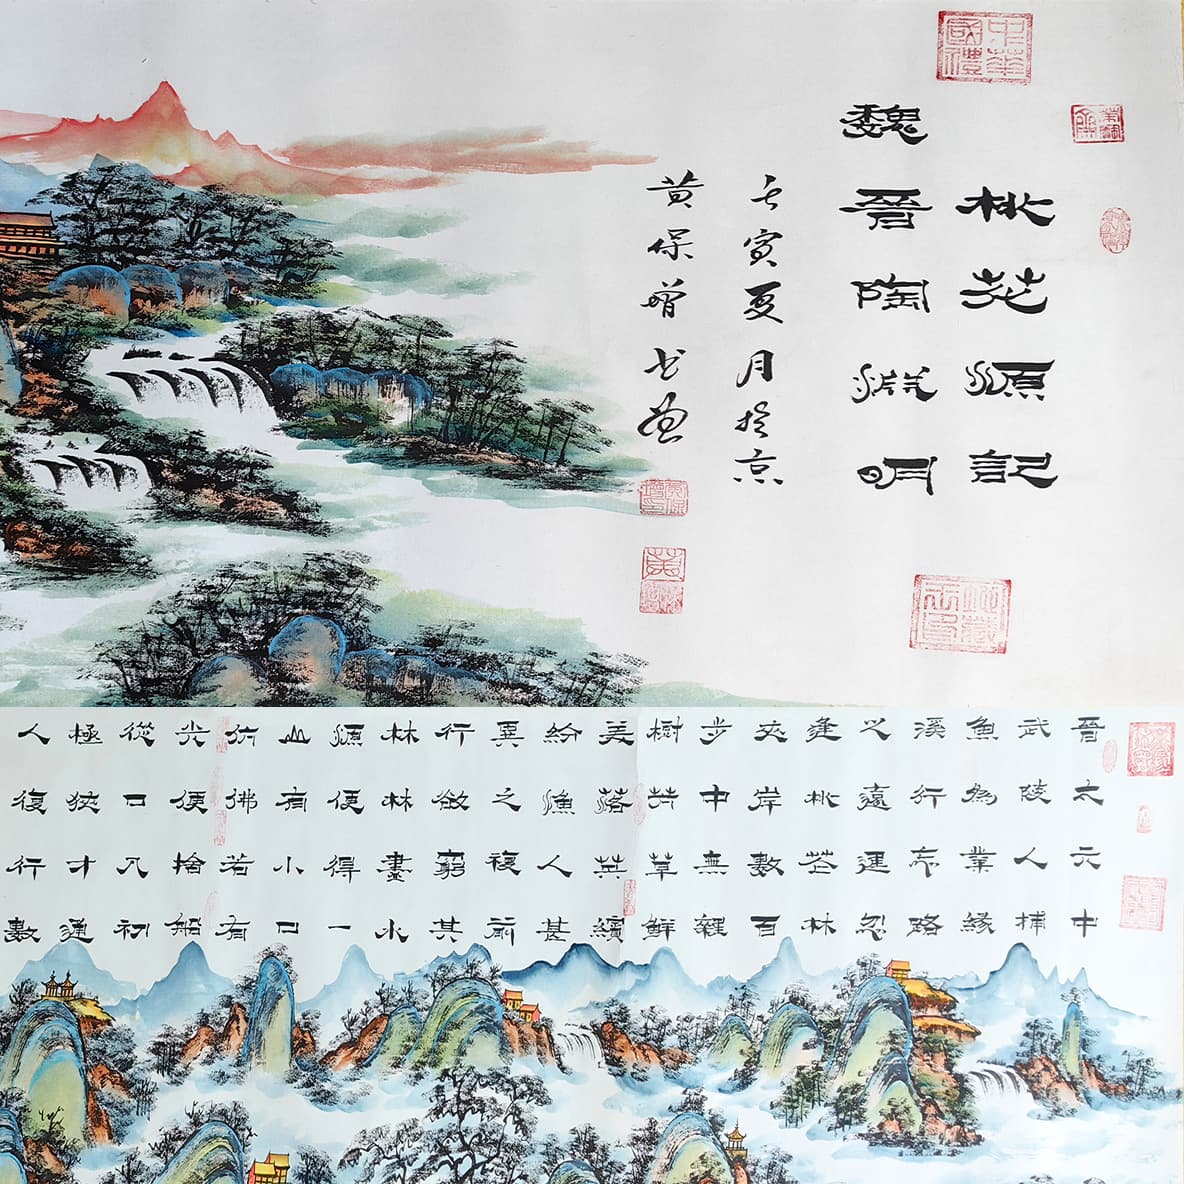 中華國禮
桃花源記
魏晉陶淵明
壬寅夏月於京
黄保增书画
晉太元中
武陵人捕
魚為業緣
溪行忘路
之遠近忽
逢桃花林
夾岸數百
步中無雜
樹芳草鮮
美落英繽
紛漁人甚
異之複前
行欲窮其
林林盡水
源便得一
山有小口
仿佛若有
光便捨船
從口入初
極狹才通
人復行數